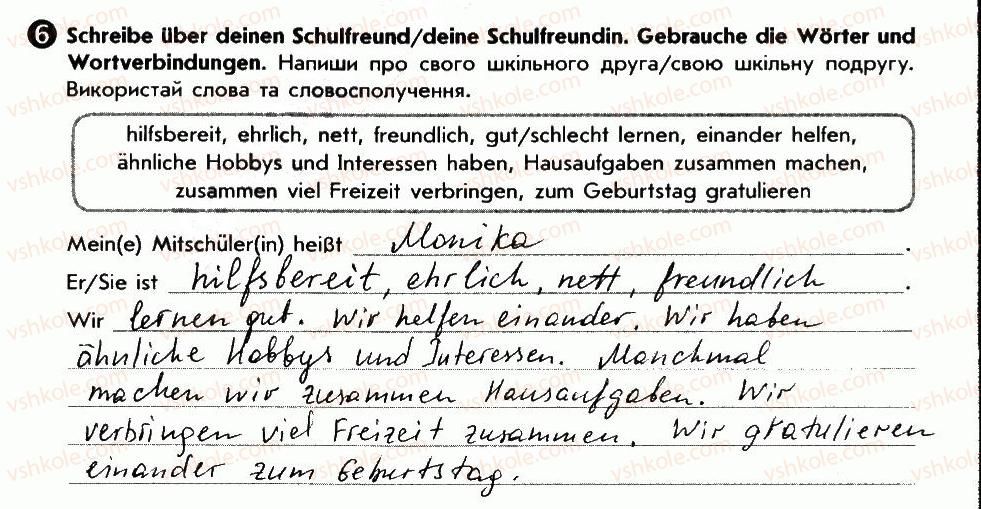 6 Schreibe über deinen Schulfreund/deine Schulfreundin. Gebrauche die Wörter und
Wortverbindungen. Напиши про свого шкільного друга/свою шкільну подругу.
Використай слова та словосполучення.
hilfsbereit, ehrlich, nett, freundlich, gut/schlecht lernen, einander helfen,
ähnliche Hobbys und Interessen haben, Hausaufgaben zusammen machen,
zusammen viel Freizeit verbringen, zum Geburtstag gratulieren
Mein(e) Mitschüler(in) heißt Monika.
Er/Sie ist hilfsbereit, ehrlich, nett, freundlich.
Wir lernen gut. Wir helfen einander. Wir haben
ähnliche Hobbys und Interessen. Manchmal
machen wir zusammen Hausaufgaben. Wir
verbringen viel Freizeit zusammen. Wir gratulieren
einander zum Geburtstag.